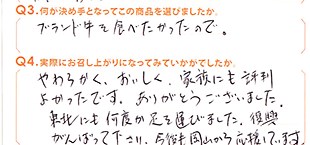 Q3.何が決め手となってこの商品を選びましたか。
ブランド牛を食べたかったので。
Q4.実際にお召し上がりになってみていかがでしたか。
やわらかく、おいしく、家族にも評判
よかったです。ありがとうございました。
東北にも何度か足を運びました。復興
がんばって下さい。今後も岡山から応援しています。